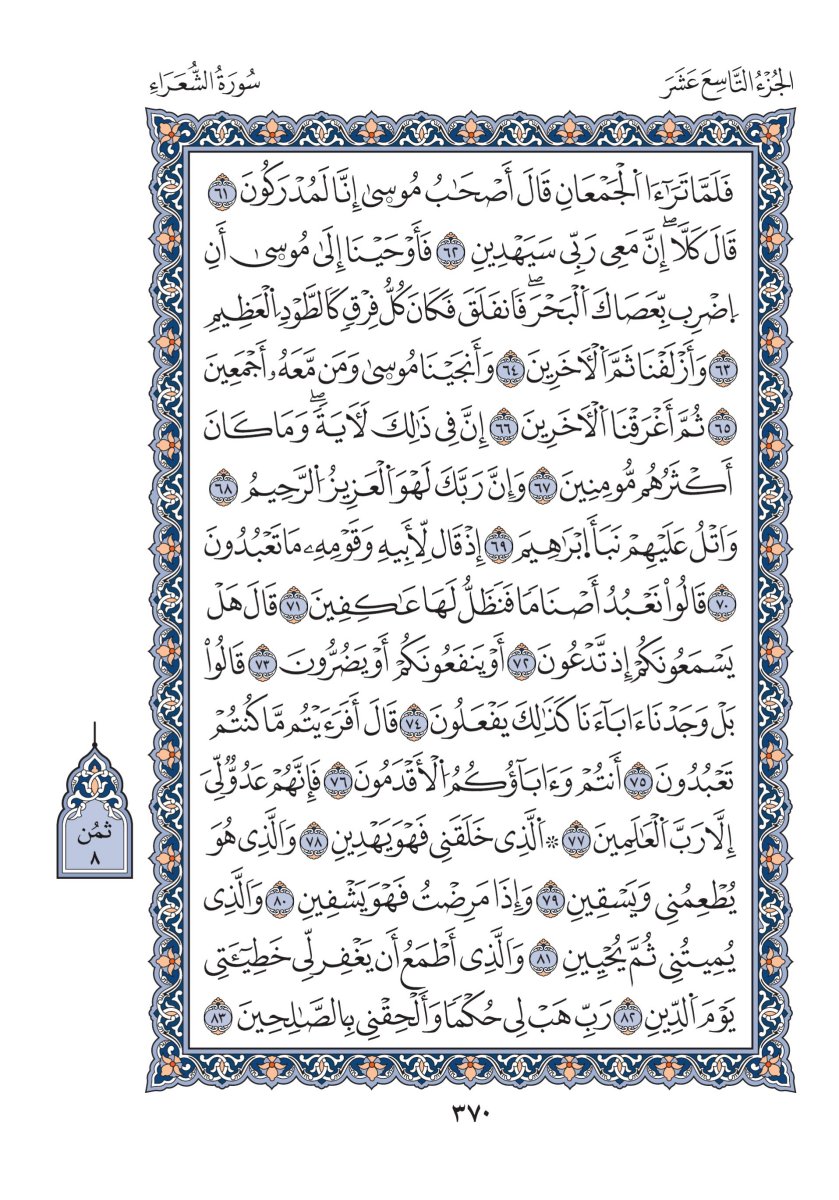 الجُزْءُ التَّاسِعَ عَشَرَ
سُورَةُ الشُّعَرَاءِ
فَلَمَّا تَرَٰٓءَا اَ۬لْجَمْعَانِ قَالَ أَصْحَٰبُ مُوسۭيٰٓ إِنَّا لَمُدْرَكُونَ ٦١
قَالَ كَلَّآۖ إِنَّ مَعِي رَبِّي سَيَهْدِينِ ٦٢ فَأَوْحَيْنَآ إِلَىٰ مُوسۭيٰٓ أَنِ
اِ۪ضْرِب بِّعَصَاكَ اَ۬لْبَحْرَۖ فَانفَلَقَ فَكَانَ كُلُّ فِرْقٖ كَالطَّوْدِ اِ۬لْعَظِيمِ
٦٣ وَأَزْلَفْنَا ثَمَّ اَ۬لْأٓخَرِينَ ٦٤ وَأَنجَيْنَا مُوسۭيٰ وَمَن مَّعَهُۥٓ أَجْمَعِينَ
٦٥ ثُمَّ أَغْرَقْنَا اَ۬لْأٓخَرِينَ ٦٦ إِنَّ فِي ذَٰلِكَ لَأٓيَةٗۖ وَمَا كَانَ
أَكْثَرُهُم مُّومِنِينَ ٦٧ وَإِنَّ رَبَّكَ لَهْوَ اَ۬لْعَزِيزُ اُ۬لرَّحِيمُ ٦٨
وَاَتْلُ عَلَيْهِمْ نَبَأَ اِ۪بْرَٰهِيمَ ٦٩ إِذْ قَال لِّأَبِيهِ وَقَوْمِهِۦ مَا تَعْبُدُونَ
٧٠ قَالُواْ نَعْبُدُ أَصْنَامٗا فَنَظَلُّ لَهَا عَٰكِفِينَ ٧١ قَالَ هَلْ
يَسْمَعُونَكُمْ إِذ تَّدْعُونَ ٧٢ أَوْ يَنفَعُونَكُمْ أَوْ يَضُرُّونَ ٧٣ قَالُواْ
بَلْ وَجَدْنَآ ءَابَآءَنَا كَذَٰلِكَ يَفْعَلُونَ ٧٤ قَالَ أَفَرَءَيْتُم مَّا كُنتُمْ
تَعْبُدُونَ ٧٥ أَنتُمْ وَءَابَآؤُكُمُ اُ۬لْأَقْدَمُونَ ٧٦ فَإِنَّهُمْ عَدُوّٞ لِّيَ
إِلَّا رَبَّ اَ۬لْعَٰلَمِينَ ٧٧ ۞اَ۬لَّذِي خَلَقَنِي فَهْوَ يَهْدِينِ ٧٨ وَالَّذِي هُوَ
يُطْعِمُنِي وَيَسْقِينِ ٧٩ وَإِذَا مَرِضْتُ فَهْوَ يَشْفِينِ ٨٠ وَالَّذِي
يُمِيتُنِي ثُمَّ يُحْيِينِ ٨١ وَالَّذِيٓ أَطْمَعُ أَن يَغْفِر لِّي خَطِيٓـَٔتِي
يَوْمَ اَ۬لدِّينِ ٨٢ رَبِّ هَبْ لِي حُكْمٗا وَأَلْحِقْنِي بِالصَّٰلِحِينَ ٨٣
ثُمُن
٨
٣٧٠